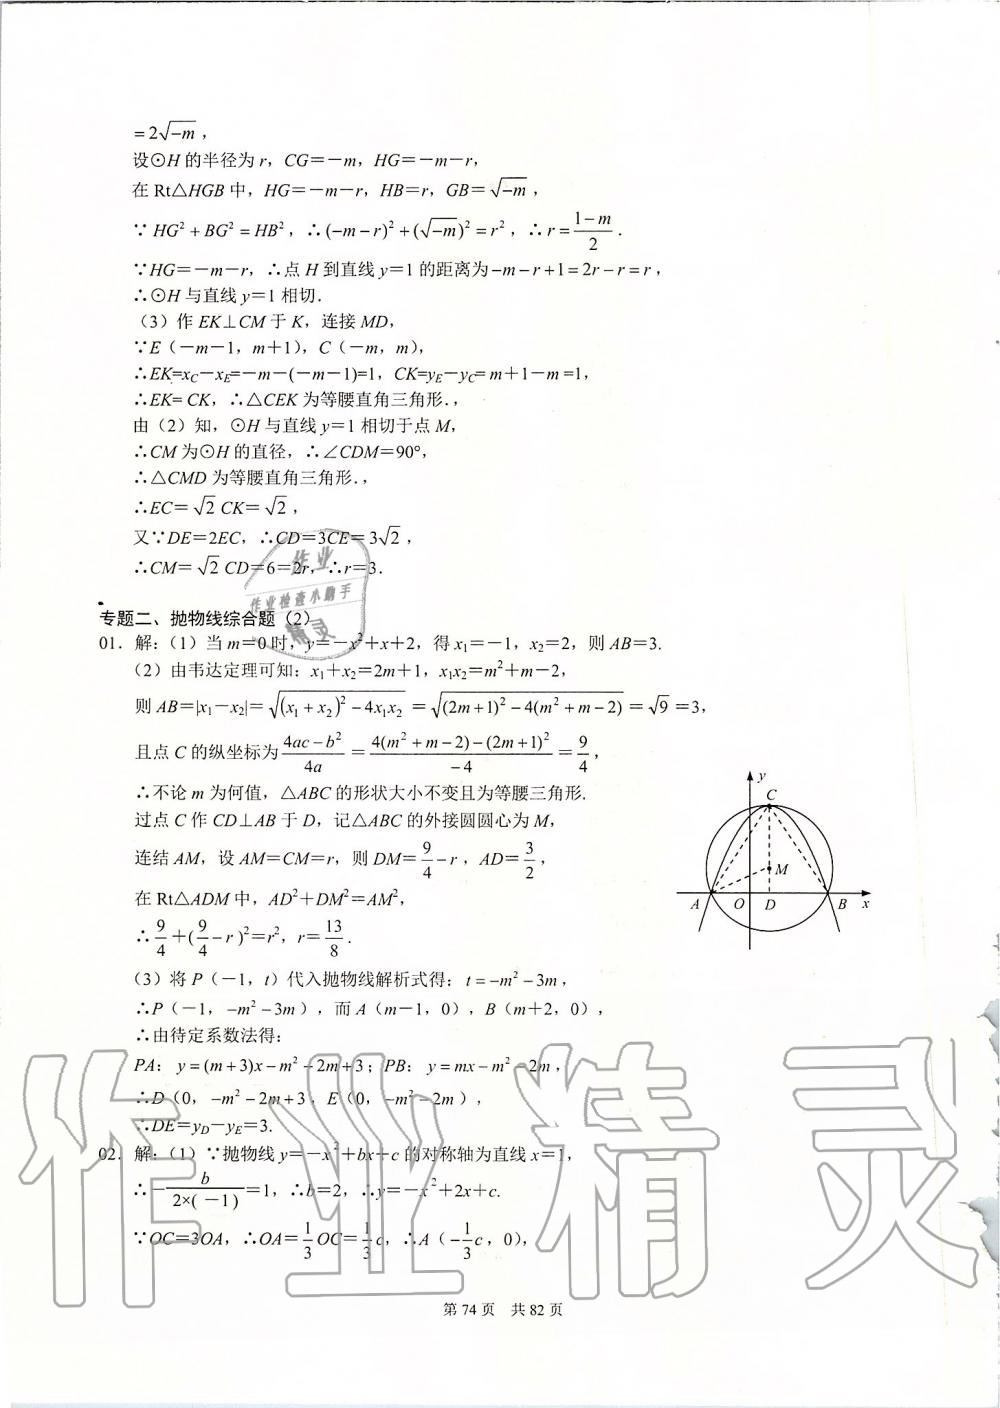 =2√-m，
设⊙H的半径为r，CG=-m，HG=-m-r，
在Rt△HGB中，HG=-m-r，HB=r，GB=√-m，
∵HG²+BG²=HB²，∴(-m-r)²+(√-m)²=r²，∴r=(1-m)/2.
∵HG=-m-r，∴点H到直线y=1的距离为-m-r+1=2r-r=r，
∴⊙H与直线y=1相切.
（3）作EK⊥CM于K，连接MD，
∵E（-m-1，m+1），C（-m，m），
∴EK=x_C-x_E=-m-(-m-1)=1，CK=y_E-y_C=m+1-m=1，
∴EK=CK，∴△CEK为等腰直角三角形.，
由（2）知，⊙H与直线y=1相切于点M，
∴CM为⊙H的直径，∴∠CDM=90°，
∴△CMD为等腰直角三角形.，
∴EC=√2CK=√2，
又∵DE=2EC，∴CD=3CE=3√2，
∴CM=√2CD=6=2r，∴r=3.
作业
作业检查小助手
精灵
专题二、抛物线综合题（2）
01．解：（1）当m=0时，y=-x²+x+2，得x₁=-1，x₂=2，则AB=3.
（2）由韦达定理可知：x₁+x₂=2m+1，x₁x₂=m²+m-2，
则AB=|x₁-x₂|=√((x₁+x₂)²-4x₁x₂)=√((2m+1)²-4(m²+m-2))=√9=3，
且点C的纵坐标为(4ac-b²)/4a=(4(m²+m-2)-(2m+1)²)/-4=9/4，
∴不论m为何值，△ABC的形状大小不变且为等腰三角形.
过点C作CD⊥AB于D，记△ABC的外接圆圆心为M，
连结AM，设AM=CM=r，则DM=9/4-r，AD=3/2，
在Rt△ADM中，AD²+DM²=AM²，
∴9/4+(9/4-r)²=r²，r=13/8.
y
C
M
A O D B x
（3）将P（-1，t）代入抛物线解析式得：t=-m²-3m，
∴P（-1，-m²-3m），而A（m-1，0），B（m+2，0），
∴由待定系数法得：
PA：y=(m+3)x-m²-2m+3；PB：y=mx-m²-2m，
∴D（0，-m²-2m+3，E（0，-m²-2m），
∴DE=y_D-y_E=3.
02．解：（1）∵抛物线y=-x²+bx+c的对称轴为直线x=1，
∴-b/(2×(-1))=1，∴b=2，∴y=-x²+2x+c.
∵OC=3OA，∴OA=1/3OC=1/3c，∴A（-1/3c，0），
作业精灵
第74页 共82页